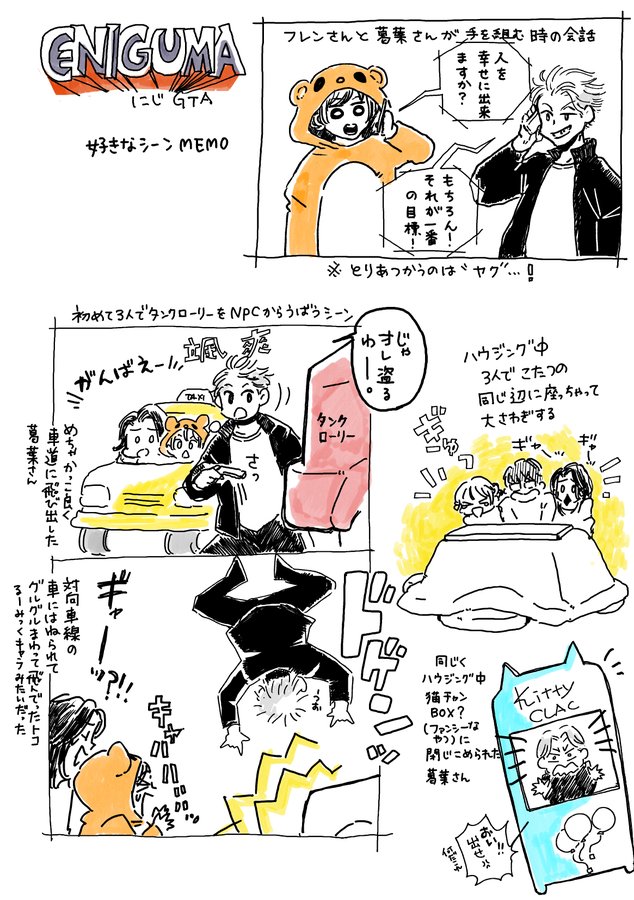 ENIGUMA
にじGTA
好きなシーンMEMO
フレンさんと葛葉さんが手を組む時の会話
人を
幸せに出来
ますか?
もちろん!
それが一番
の目標!
※とりあつかうのは“ヤグ”…!
初めて3人でタンクローリーをNPCからうばうシーン
がんばえー!!
颯爽
TAXI
じゃ
オレ盗る
わー。
さっ
タンク
ローリー
めちゃかっこ良く
車道に飛び出した
葛葉さん
ハウジング中
3人でこたつの
同じ辺に座っちゃって
大さわぎする
ぎゅっ
ギャー
ギャー
対向車線の
車にはねられて
グルグルまわって飛んでったトコ
るーみっくキャラみたいだった
ギャーッ?!!
ドゲン!
キャー
同じく
ハウジング中
猫チャン
BOX?
(ファンシーな
やつ)に
閉じこめられた
葛葉さん
KITTY
CLAC
おい!!
出せや